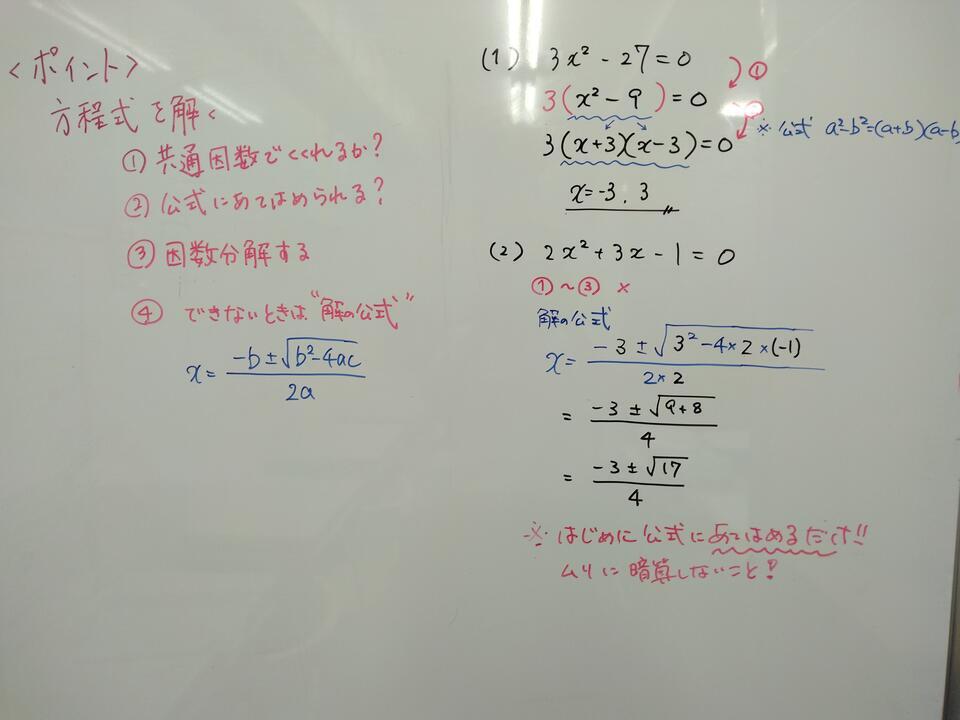 <ポイント>
方程式を解く
① 共通因数でくくれるか?
② 公式にあてはめられる?
③ 因数分解する
④ できないときは"解の公式"
x = (-b±√(b²-4ac))/2a
(1) 3x² - 27 = 0
①
3(x² - 9) = 0
※公式 a²-b²=(a+b)(a-b)
3(x+3)(x-3) = 0
x = -3, 3
(2) 2x² + 3x - 1 = 0
①~③ ×
解の公式
x = (-3 ± √(3² - 4×2×(-1)))/(2×2)
= (-3 ± √(9+8))/4
= (-3 ± √17)/4
※ はじめに公式にあてはめるだけ!!
ムリに暗算しないこと!